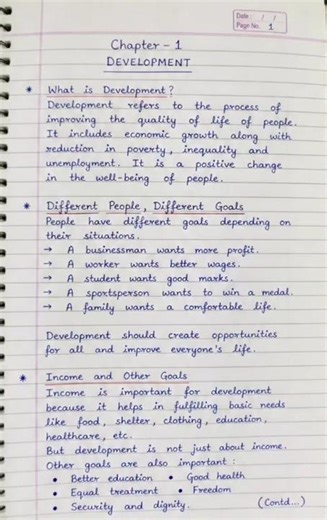 Date / /
Page No. 1
Chapter - 1
DEVELOPMENT
* What is Development?
Development refers to the process of
improving the quality of life of people.
It includes economic growth along with
reduction in poverty, inequality and
unemployment. It is a positive change
in the well-being of people.
* Different People, Different Goals
People have different goals depending on
their situations.
→ A businessman wants more profit.
→ A worker wants better wages.
→ A student wants good marks.
→ A sportsperson wants to win a medal.
→ A family wants a comfortable life.
Development should create opportunities
for all and improve everyone's life.
* Income and Other Goals
Income is important for development
because it helps in fulfilling basic needs
like food, shelter, clothing, education,
healthcare, etc.
But development is not just about income.
Other goals are also important :
• Better education • Good health
• Equal treatment • Freedom
• Security and dignity. (Contd...)